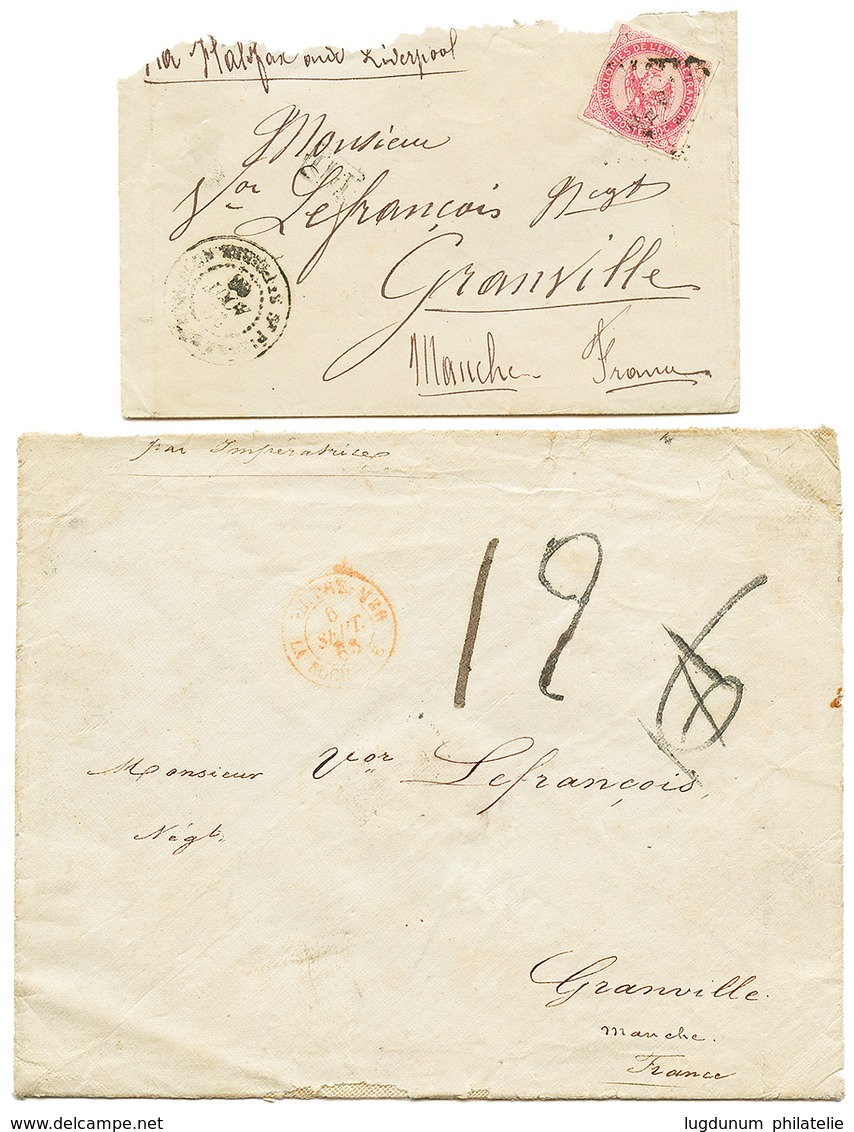 Via Halifax and Liverpool
COLONIES DE L'EMPIRE FRANÇAIS
POSTES
Monsieur
Vor Lefrançois Negt
Granville
Manche France
ST PIERRE
AOUT
par Impératrice
OUTRE-MER
6
SEPT.
65
19
Monsieur Vor Lefrançois,
Négt.
Granville.
Manche.
France
delcampe.net
lugdunum philatelie